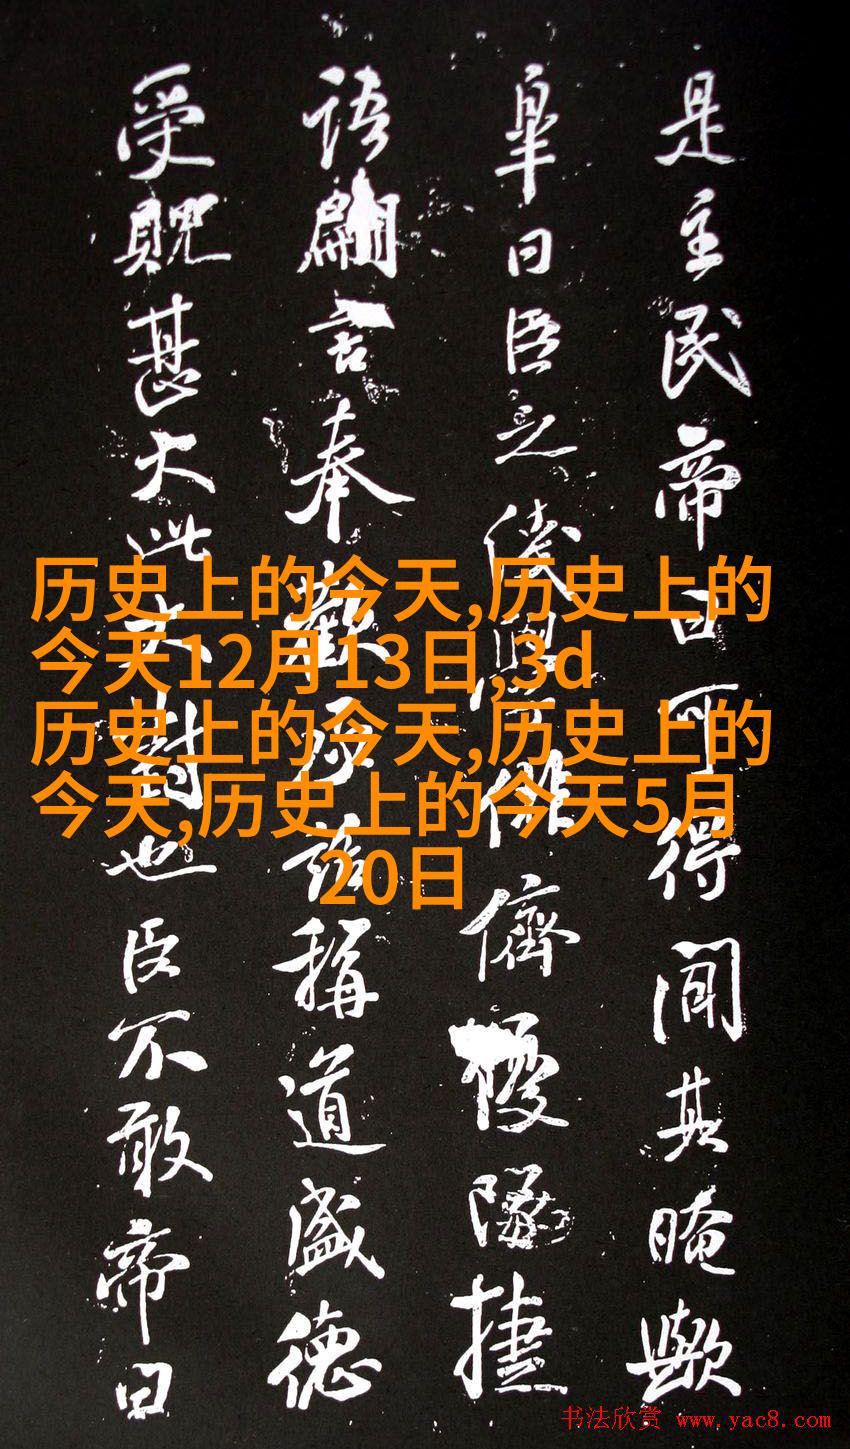 是主民帝曰可得聞其晻歟
皐曰臣之儔
儕優隊捷
語翩言奉歡
稱道盛德
受貺甚大此
對也臣不敢帝曰
历史上的今天,历史上的
今天12月13日,3d
历史上的今天,历史上的
今天,历史上的今天5月
20日
书法欣赏 www.yac8.com